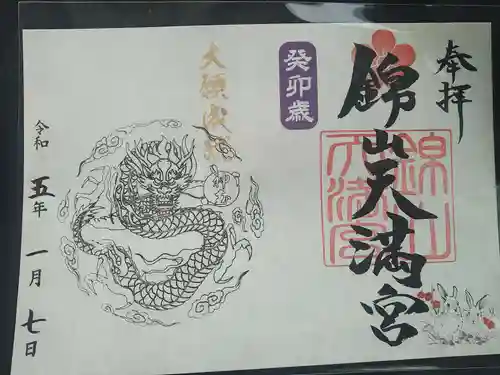 奉拝
錦山天満宮
錦山
天満宮
癸卯歳
大願成就
令和五年一月七日